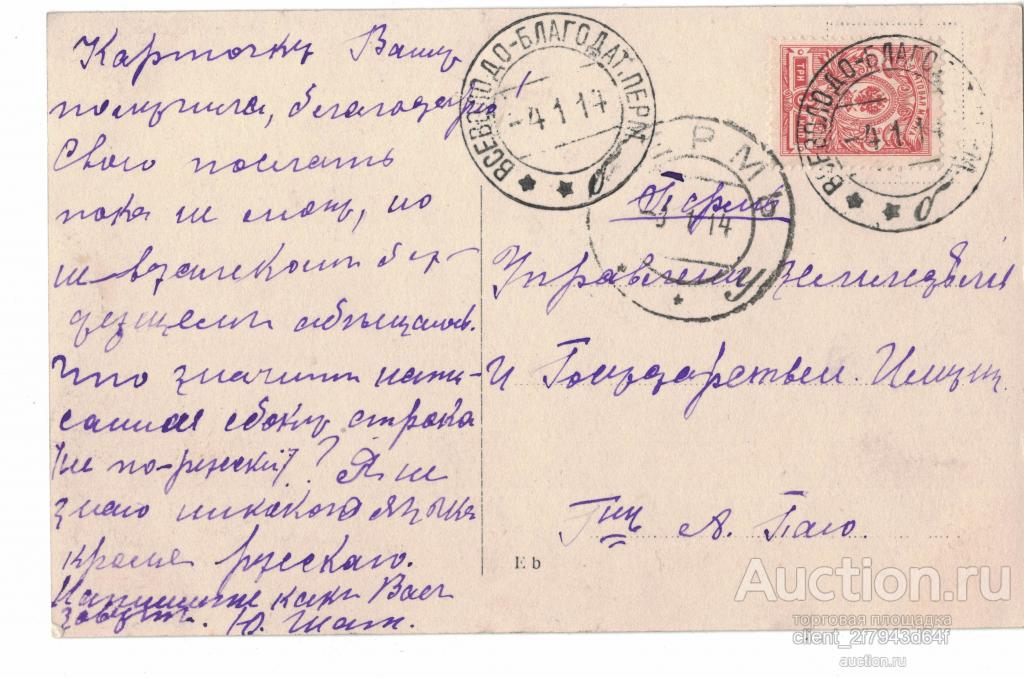 Карточку Вашу
получила, благодарю
Свою послать
пока не могу, но
не в далеком бу-
дущем обещаюсь.
Что значит напи-
санная сбоку строка
(не по-русски)? Я не
знаю никакого языка
кроме русскаго.
Напишите какъ Васъ
зовут. Ю. Шат.
ВСЕВОЛОДО-БЛАГОДАТ. ПЕРМ.
-4 1 14
б
ВСЕВОЛОДО-БЛАГОД
-4 1 14
б
ТРИ
ПЕРМЬ
1 14
Пермь
Управление Земледелия
и Государствен. Имущ.
Гну А. Паю.
E b
Auction.ru
торговая площадка
client_2f7943d64f
auction.ru